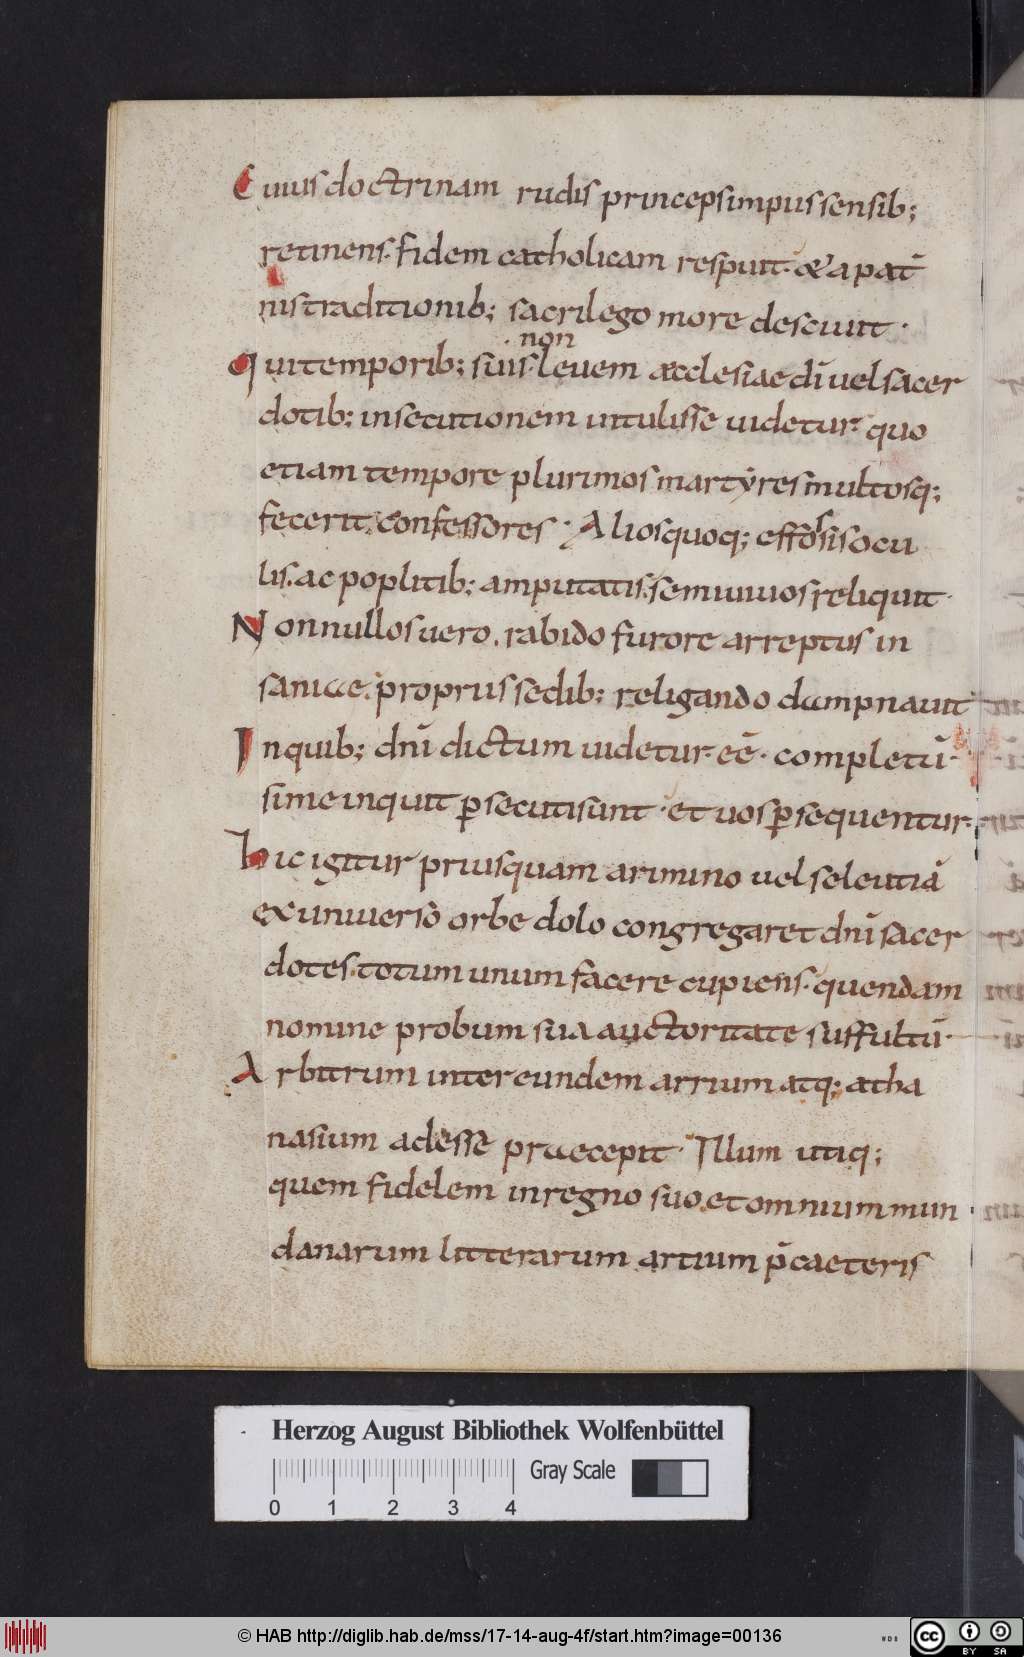 Cuius doctrinam rudis princeps impus sensib;
retinens. fidem catholicam respuit. & a pat̄
nis traditionib; sacrilego more desciuit.
non
Qui temporib; suis. leuem æcclesiae dī uel sacer
dotib; insecutionem intulisse uidetur. quo
etiam tempore plurimos martyres multosq;
fecerit. confessores. Alios quoq; effossis ocu
lis. ac poplitib; amputatis. semiuiuos reliquit.
Nonnullos uero. rabido furore arreptus in
saniae. propriis sedib; religando dampnauit
In quib; dnī dictum uidetur eē. completū.
si me inquit p̄secuti sunt. et uos p̄sequentur.
hic igitur priusquam arimino uel seleutiā
ex uniuerso orbe dolo congregaret dnī sacer
dotes. totum unum facere cupiens. quendam
nomine probum sua auctoritate suffultū.
Arbitrum inter eundem arrium atq; atha
nasium adesse praecepit. Illum utiq;
quem fidelem in regno suo. et omnium mun
danarum litterarum artium p̄ caeteris
Herzog August Bibliothek Wolfenbüttel
0 1 2 3 4
Gray Scale
© HAB http://diglib.hab.de/mss/17-14-aug-4f/start.htm?image=00136
WDB
cc BY SA